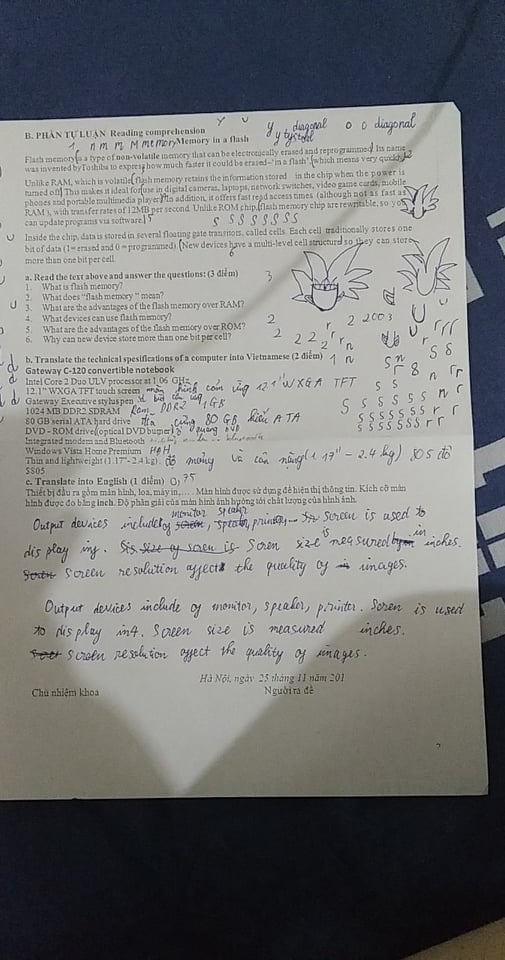 y u
y diagonal o o diagonal
y tystool
B. PHẦN TỰ LUẬN Reading comprehension
1, n m m M memory Memory in a flash
Flash memory is a type of non-volatile memory that can be electronically erased and reprogrammed. Its name
was invented by Toshiba to express how much faster it could be erased – 'in a flash', which means very quickly. 2
Unlike RAM, which is volatile, flash memory retains the information stored in the chip when the power is
turned off. This makes it ideal for use in digital cameras, laptops, network switches, video game cards, mobile
phones and portable multimedia players. In addition, it offers fast read access times (although not as fast as
RAM), with transfer rates of 12MB per second. Unlike ROM chip, flash memory chip are rewritable, so you
can update programs via software. 5
S SSSSSSS
Inside the chip, data is stored in several floating gate transistors, called cells. Each cell traditionally stores one
bit of data (1= erased and 0 = programmed). New devices have a multi-level cell structure so they can store
more than one bit per cell. 6
a. Read the text above and answer the questions: (3 điểm) 3
1. What is flash memory?
2. What does "flash memory" mean?
3. What are the advantages of the flash memory over RAM?
4. What devices can use flash memory? 2
5. What are the advantages of the flash memory over ROM?
6. Why can new device store more than one bit per cell?
2 2003
2 2 2
b. Translate the technical spesifications of a computer into Vietnamese (2 điểm)
Gateway C-120 convertible notebook
Intel Core 2 Duo ULV processor at 1.06 GHz
12.1" WXGA TFT touch screen màn hình cảm ứng 12.1" WXGA TFT
Gateway Executive stylus pen
1024 MB DDR2 SDRAM Ram DDR2 1GB
80 GB serial ATA hard drive đĩa cứng 80 GB kiểu ATA
DVD - ROM drive (optical DVD burner) ổ quang DVD
Integrated modem and Bluetooth
Windows Vista Home Premium HĐH
Thin and lightweight (1.17"- 2.4 kg) độ mỏng và cân nặng (1.17" – 2.4 kg) 805 đô
$805
c. Translate into English (1 điểm) 0,75
Thiết bị đầu ra gồm màn hình, loa, máy in,… Màn hình được sử dụng để hiện thị thông tin. Kích cỡ màn
hình được đo bằng inch. Độ phân giải của màn hình ảnh hưởng tới chất lượng của hình ảnh.
monitor speaker
Output devices include of screen, speaker, printer,... Screen is used to
display inf. Screen size is measured in inches.
Screen resolution affect the quality of images.
Output devices include of monitor, speaker, printer. Screen is used
to display inf. Screen size is measured inches.
Screen resolution affect the quality of images.
Hà Nội, ngày 25 tháng 11 năm 201
Chủ nhiệm khoa Người ra đề